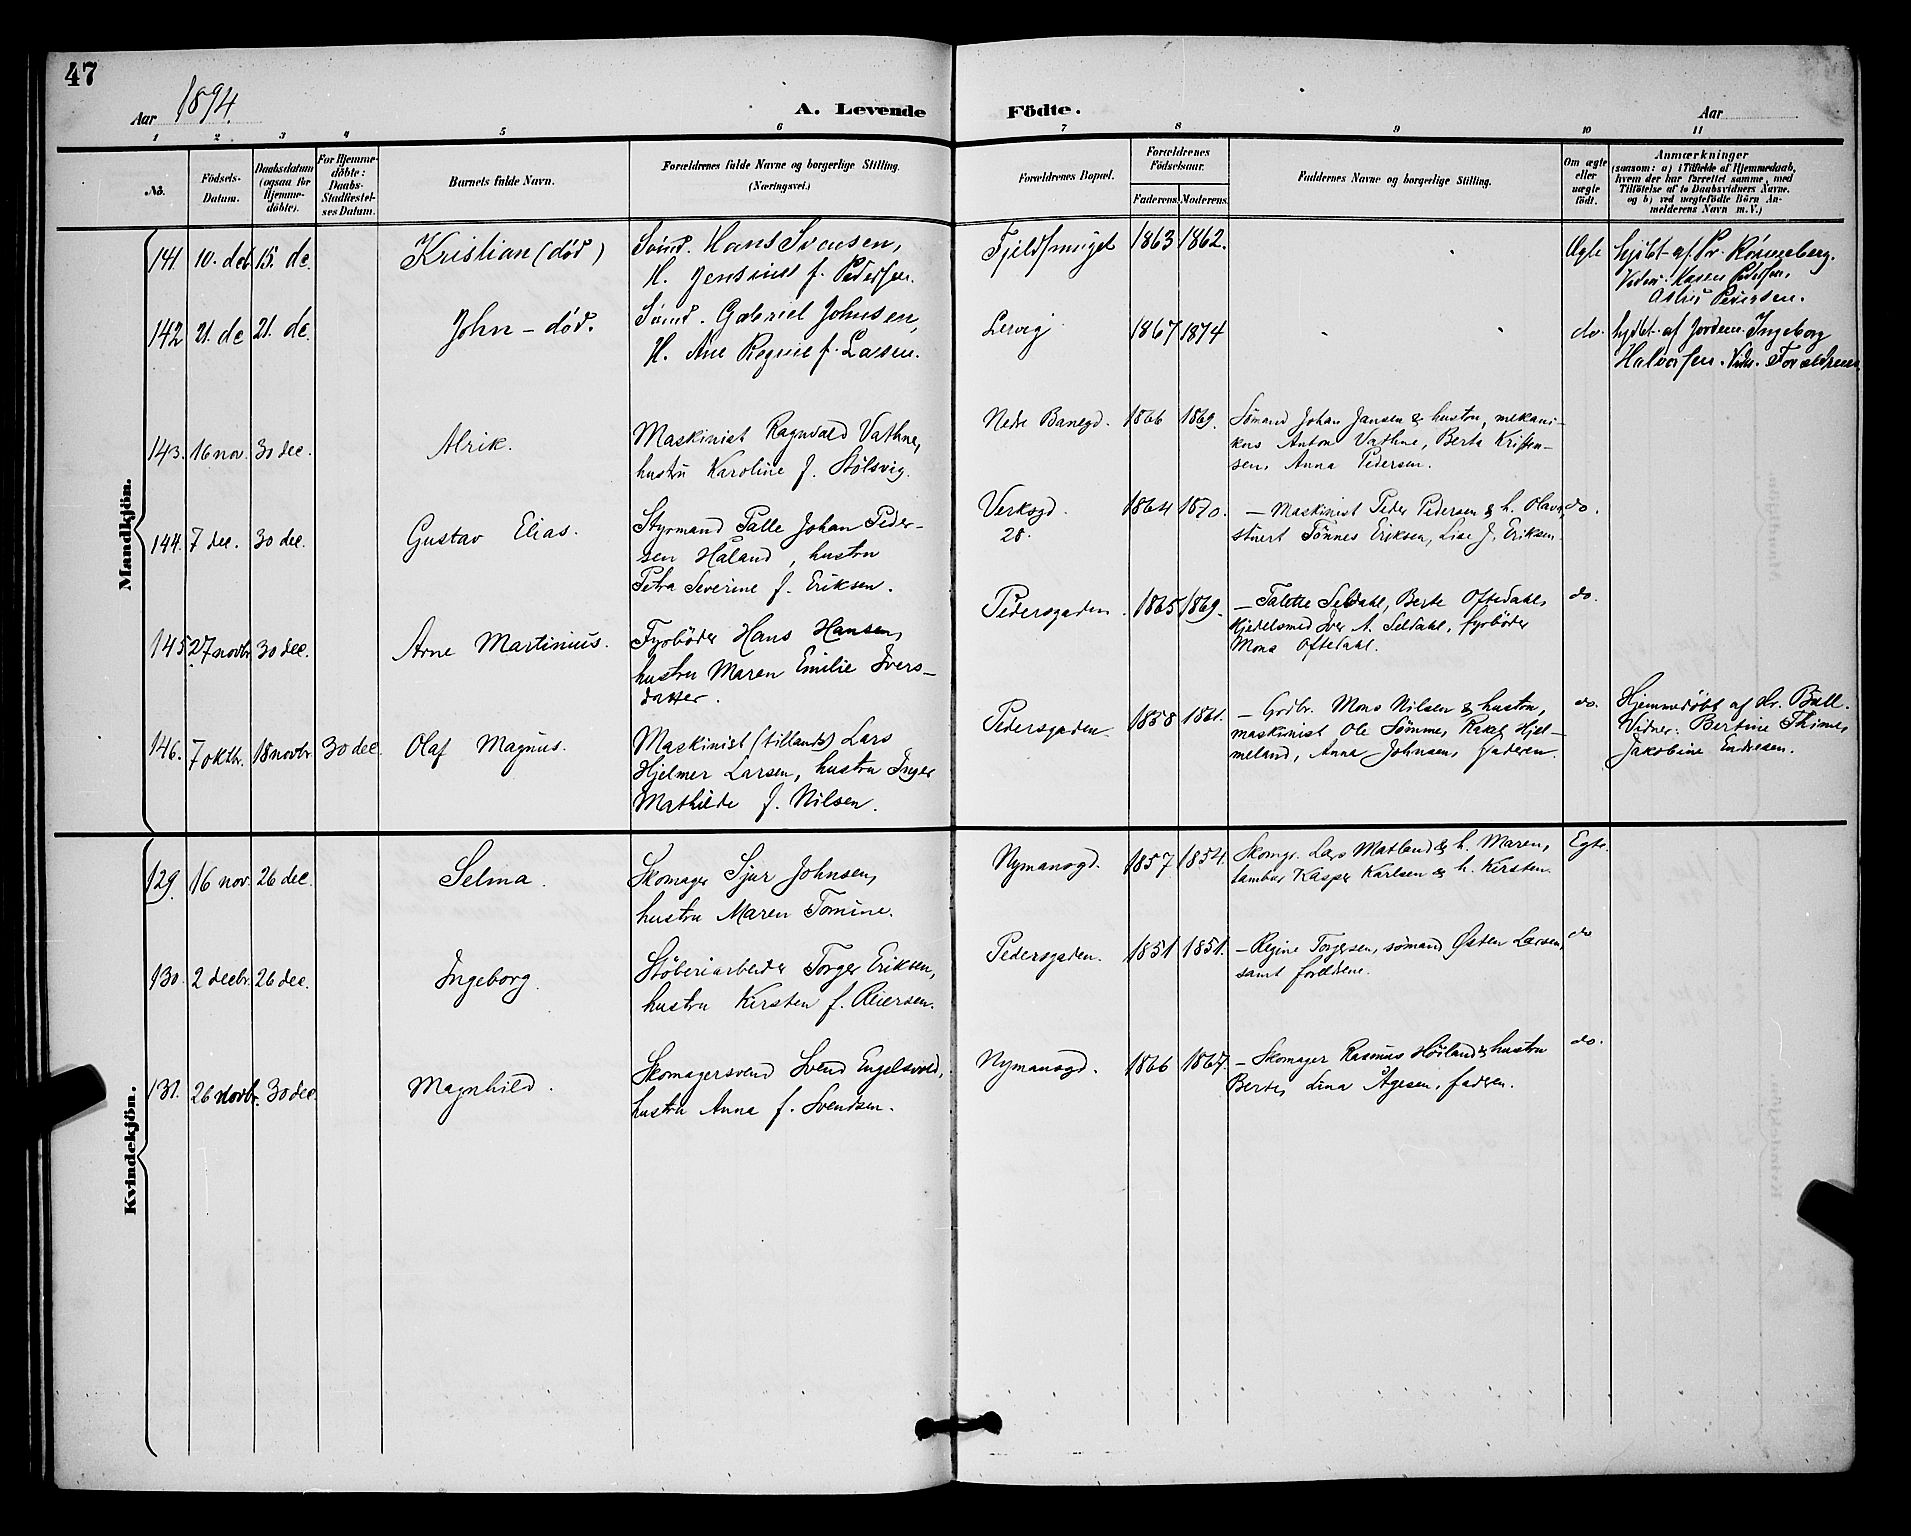 47
Aar 1894.
A. Levende Födte.
Aar
1 2 3 4 5 6 7 8 9 10 11
No.
Födsels-
Datum.
Daabsdatum
(ogsaa for
Hjemme-
döbte).
For Hjemme-
döbte:
Daabs-
Stadfæstel-
ses Datum.
Barnets fulde Navn.
Forældrenes fulde Navne og borgerlige Stilling.
(Næringsvei.)
Forældrenes Bopæl.
Forældrenes
Födselsaar.
Faderens. Moderens.
Faddernes Navne og borgerlige Stilling.
Om ægte
eller
uægte
födt.
Anmærkninger
(saasom: a) i Tilfælde af Hjemmedaab,
hvem der har forrettet samme, med
Tilföielse af to Daabsvidners Navne.
og b) ved uægtefödte Börn An-
melderens Navn m. V.)
Mandkjön.
141. 10. deb 15. de. Kristian (død)
Sømd. Hans Svensen,
H. f. Pedersen.
Fjeldsmuget 1863 1862. Ægte
hjdbt. af Pr. Rönneberg.
Vidner: Karen Pedersen,
Petersen.
142 21. de 21. de. John – død.
Sömd. Gabriel Johnsen,
H. Ane Regine f. Larsen.
Lervig 1867 1874 do.
hjdbt. af Jordem. Ingeborg
Halvorsen. Vidn. Forældrene
143. 16 nov. 30 dec. Alrik.
Maskinist Ragnvald Vathne,
hustru Karoline f. Stølsvig.
Nedre Banegd. 1866 1869.
Sømand Johan Jansen & hustru, mekani-
kus Anton Vathne, Berta Kristen-
sen, Anna Pedersen.
144. 7 dec. 30 dec. Gustav Elias.
Styrmand Palle Johan Peder-
sen Håland, hustru
Petra Severine f. Eriksen.
Verksgd.
28.
1864 1870.
– Maskinist Peder Pedersen & h. Olava,
stuert Tönnes Eriksen, Lise J. Eriksen
do.
145. 27 novbr 30 dec. Arne Martinius.
Fyrböder Hans Hansen,
hustru Maren Emilie Ivers-
datter.
Pedersgaden. 1865 1869.
– Talette Seldahl, Berte Oftedahl,
Kjedelsmed Iver A. Seldahl, fyrböder
Mons Oftedahl.
do.
146. 7 oktbr. 18 novbr 30 dec. Olaf Magnus.
Maskinist (tillands) Lars
Hjelmer Larsen, hustru Inger
Mathilde f. Nilsen.
Pedersgaden. 1858 1861.
– Grdbr. Mons Nilsen & hustru,
maskinist Ole Sömme, Rakel Hjel-
meland, Anna Johnsen, faderen.
do.
Hjemmedöbt af Hr. Bull.
Vidner: Bertine Thime,
Jakobine Endresen.
Kvindekjön.
129. 16 nov. 26 dec. Selma.
Skomager Sjur Johnsen,
hustru Maren Tomine.
Nymansgd. 1857 1854.
Skomgr. Lars Matland & h. Maren,
tambur Kasper Karlsen & h. Kirsten.
Egte.
130. 2 decbr. 26 dec. Ingeborg.
Stöberiarbeider Torger Eriksen,
hustru Kirsten f. Reiersen.
Pedersgaden. 1851 1851.
– Regine Torgersen, sömand Østen Larsen,
samt foreldrene.
do
131. 26 novbr. 30 dec. Magnhild.
Skomagersvend Svend Engelsvold,
hustru Anna f. Svendsen.
Nymansgd. 1866 1867.
– Skomager Rasmus Höiland & hustru
Berte, Lina Ågesen, faderen.
do.